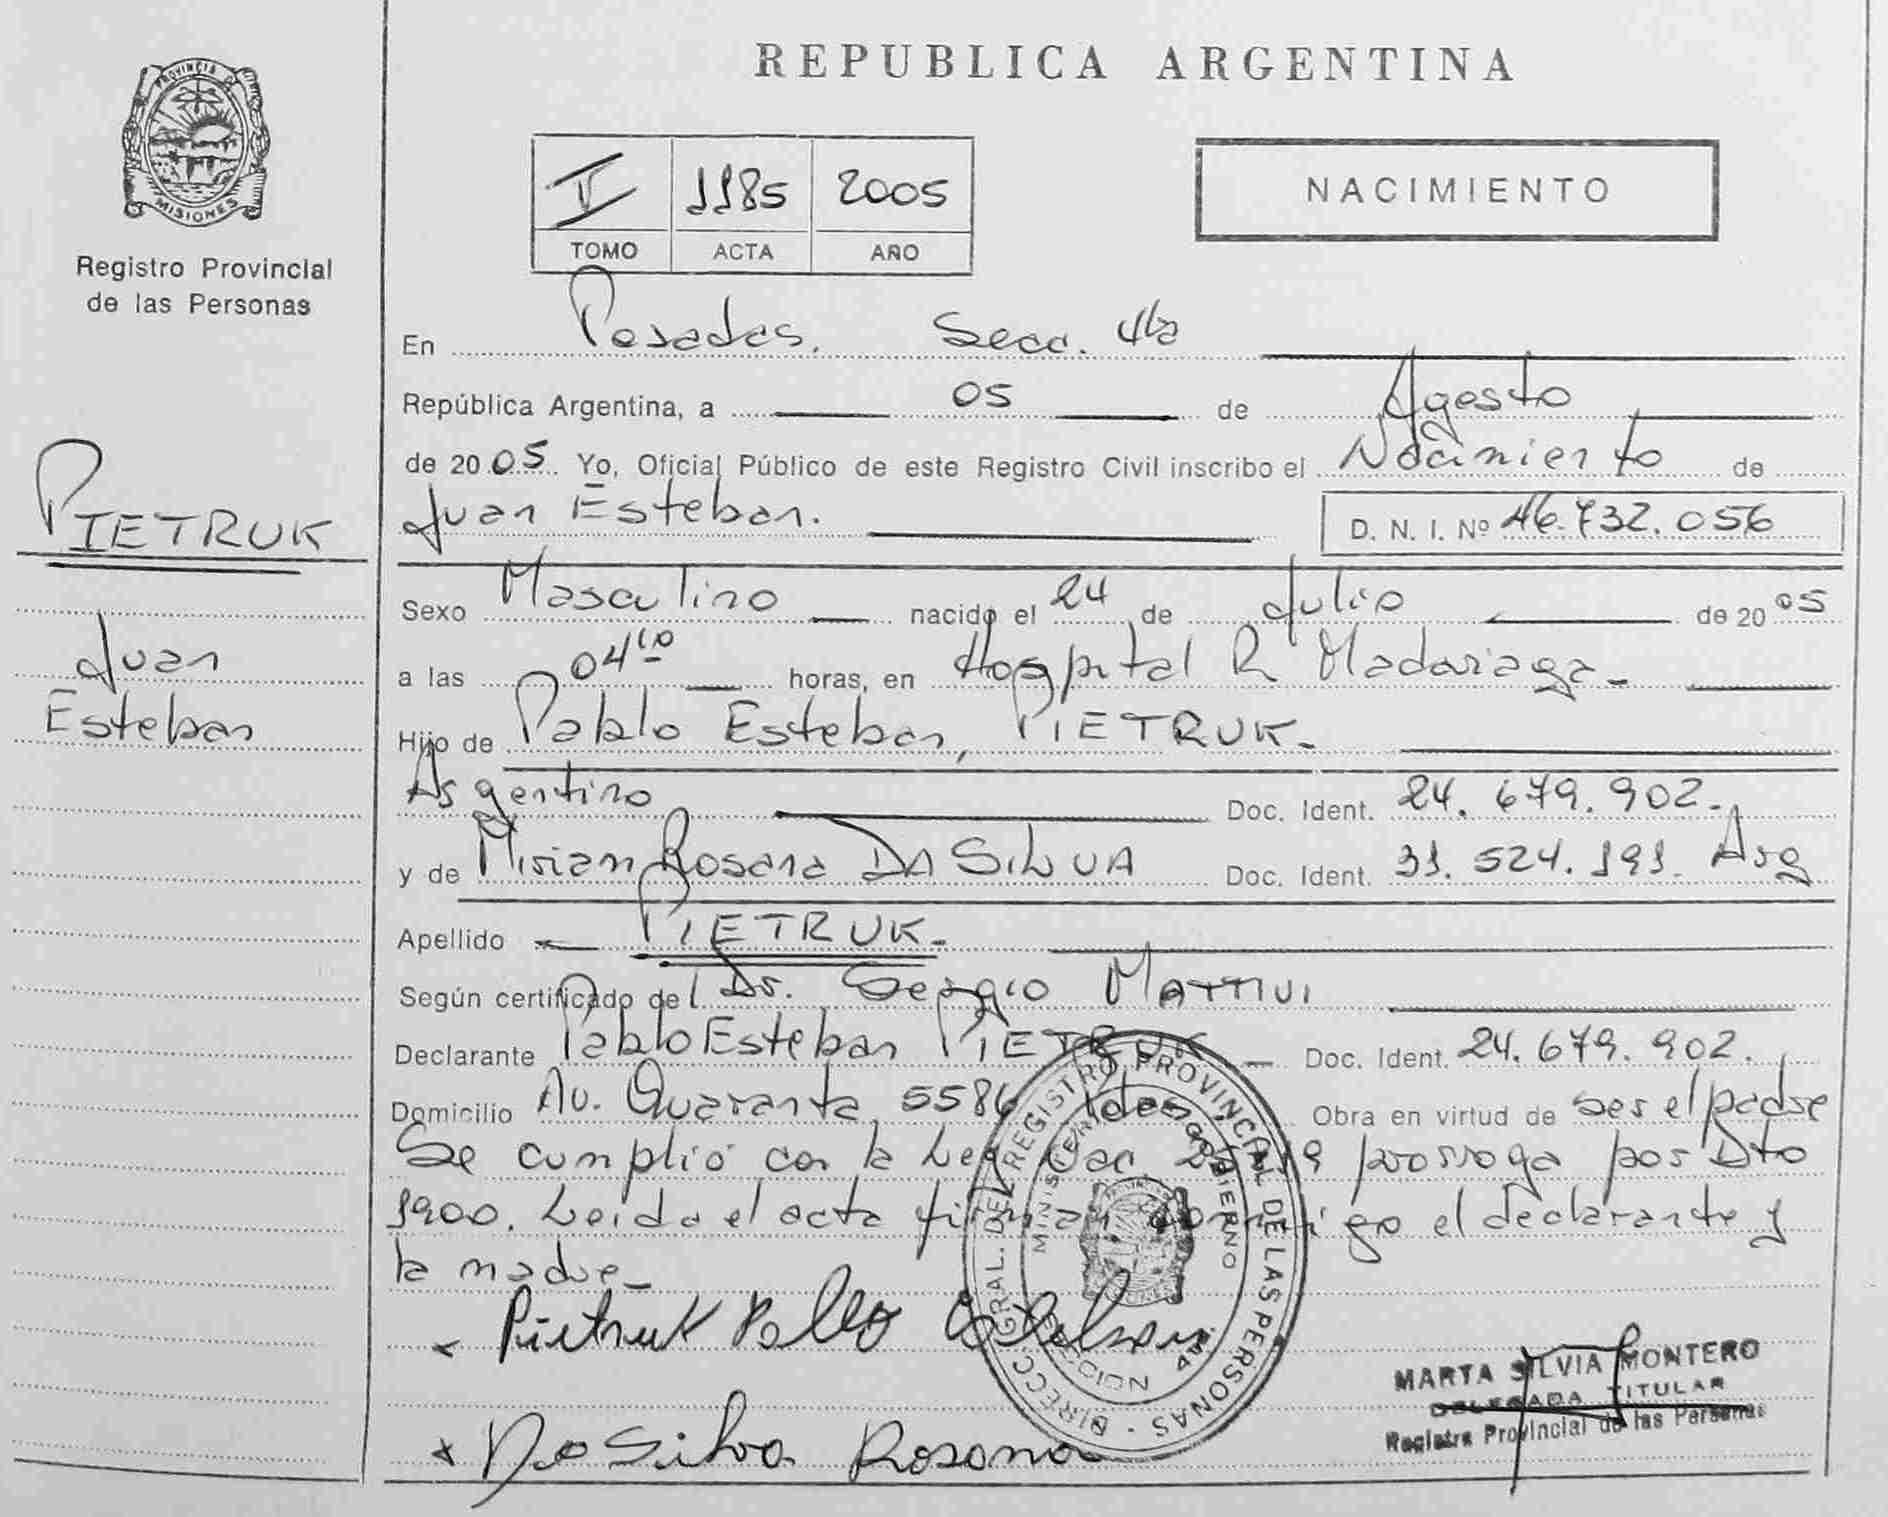 REPUBLICA ARGENTINA
PROVINCIA DE
MISIONES
Registro Provincial
de las Personas
1185 2005
TOMO ACTA AÑO
NACIMIENTO
PIETRUK
Juan
Esteban
En Posadas. Secc. 4ta
República Argentina, a 05 de Agosto
de 2005 Yo, Oficial Público de este Registro Civil inscribo el Nacimiento de
Juan Esteban. D. N. I. Nº 46.732.056
Sexo Masculino nacido el 24 de Julio de 2005
a las 04 10 horas, en Hospital R Madariaga -
Hijo de Pablo Esteban, PIETRUK -
Argentino Doc. Ident. 24.679.902 -
y de Mirian Rosana DA SILVA Doc. Ident. 31.524.191. Arg
Apellido PIETRUK -
Según certificado del Dr. Sergio
Declarante Pablo Esteban PIETRUK - Doc. Ident. 24.679.902.
Domicilio Av. Quaranta 5586 Obra en virtud de ser el padre
Se cumplió con la Ley prorroga por Dto
1900. Leida el acta firman conmigo el declarante y
la madre -
Pietruk Pablo Esteban
Da Silva Rosana
DIRECC. GRAL. DEL REGISTRO PROVINCIAL DE LAS PERSONAS
MINISTERIO DE GOBIERNO
MARTA SILVIA MONTERO
DELEGADA TITULAR
Registro Provincial de las Personas